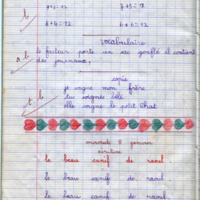 7+5=12
6+6=12
b
vocabulaire
a.b
le facteur porte un sac gonflé et contient
des journaux.
copie
t.b
je soigne mon frère
tu soignes bébé
elle soigne le petit chat
mercredi 8 janvier
écriture
le beau canif de raoul
le beau canif de raoul.
le beau canif de raoul.